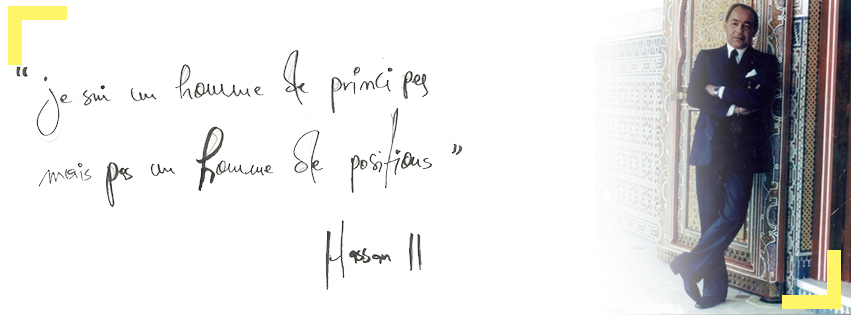 "je sui un homme de principes
mais pas un homme de positions"
Hassan II